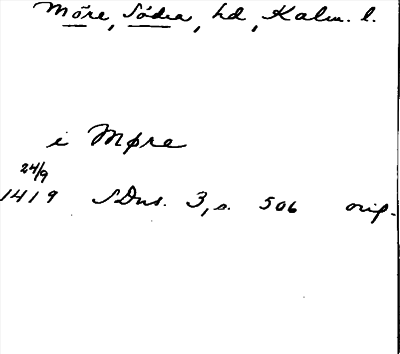 Möre, Södra, hd, Kalm. l.
i Møre
24/9
1419 SDns. 3, s. 506 orig.